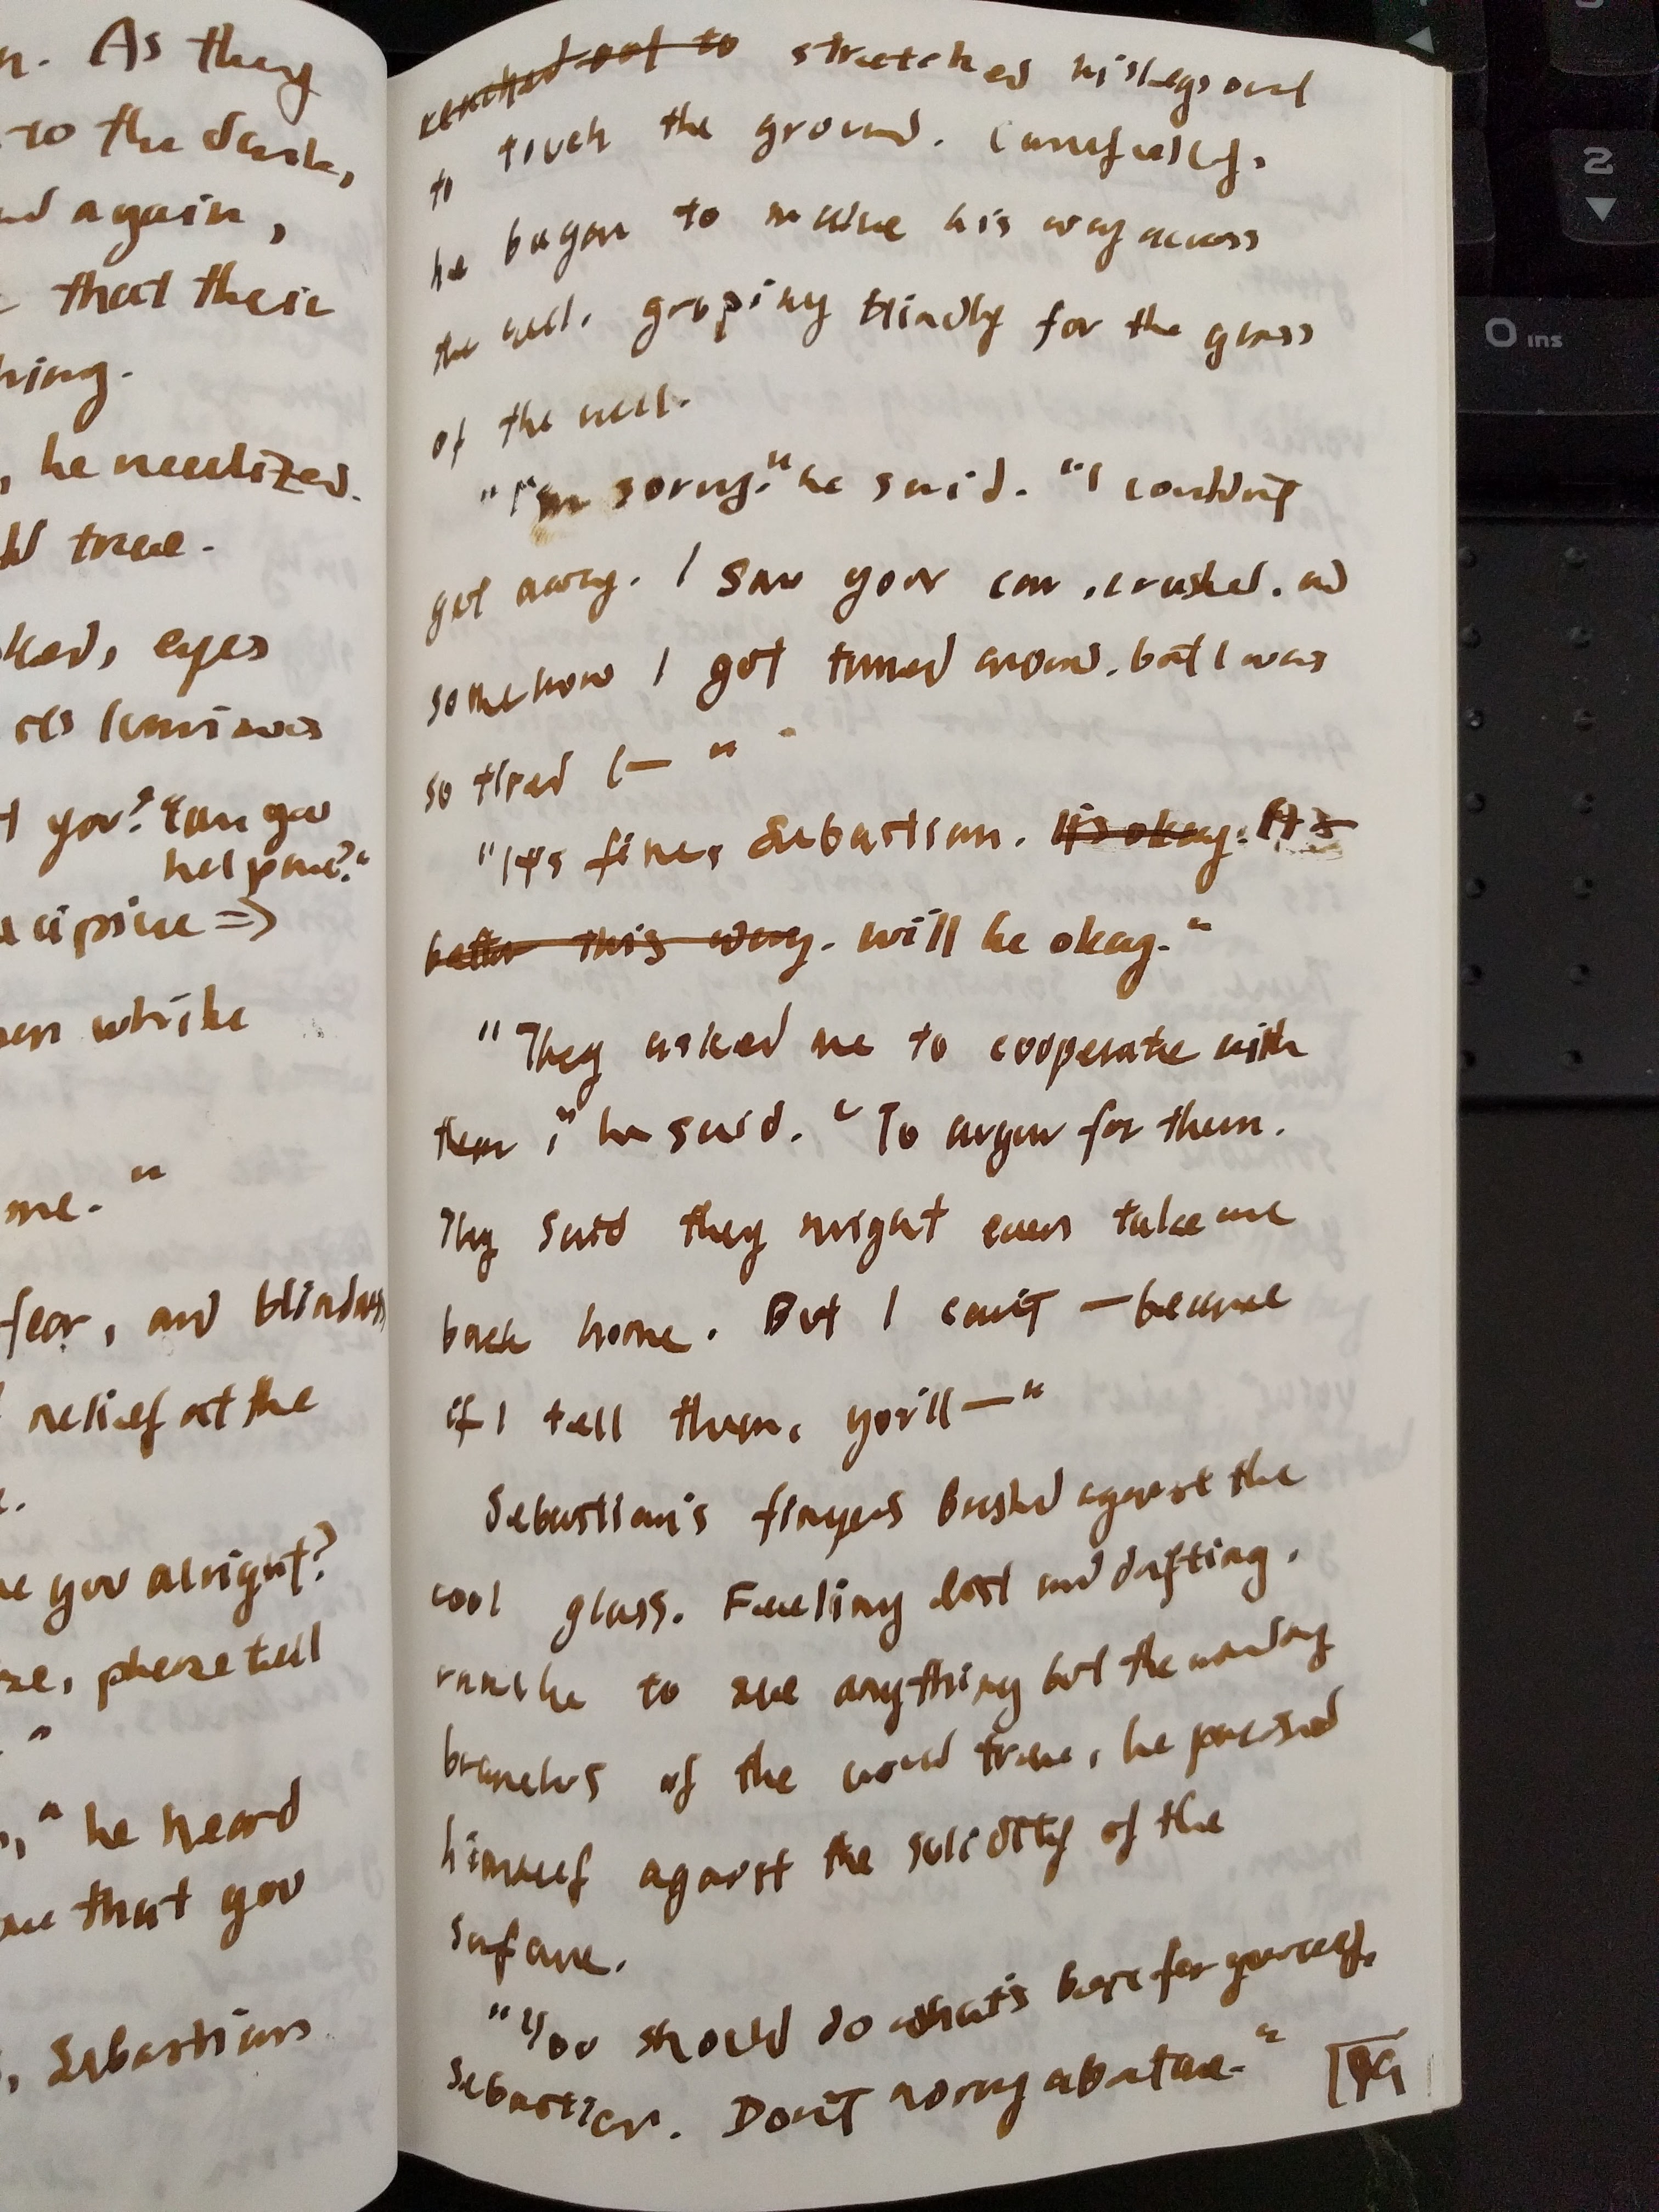 n. As they
to the dark,
again,
that their
hing.
, he realized.
tree.
ked, eyes
its luminous
you? Can you
help me?"
=>
white
me."
fear, and blindness
relief at the
you alright?
please tell
"
," he heard
that you
, Sebastian
reached out to stretched his legs out
to touch the ground. Carefully,
he began to make his way across
the cell, groping blindly for the glass
of the cell.
"I'm sorry," he said. "I couldn't
get away. I saw your car, crushed, and
somehow I got turned around, but I was
so tired I— "
"It's fine, Sebastian. It's okay. It's
better this way. will be okay."
"They asked me to cooperate with
them," he said. "To argue for them.
They said they might even take me
back home. But I can't — because
if I tell them, you'll —"
Sebastian's fingers bushed against the
cool glass. Feeling lost and drifting,
to see anything but the
branches of the world tree, he pressed
himself against the solidity of the
surface.
"You should do what's best for yourself,
Sebastian. Don't worry about me."
0 ins
2